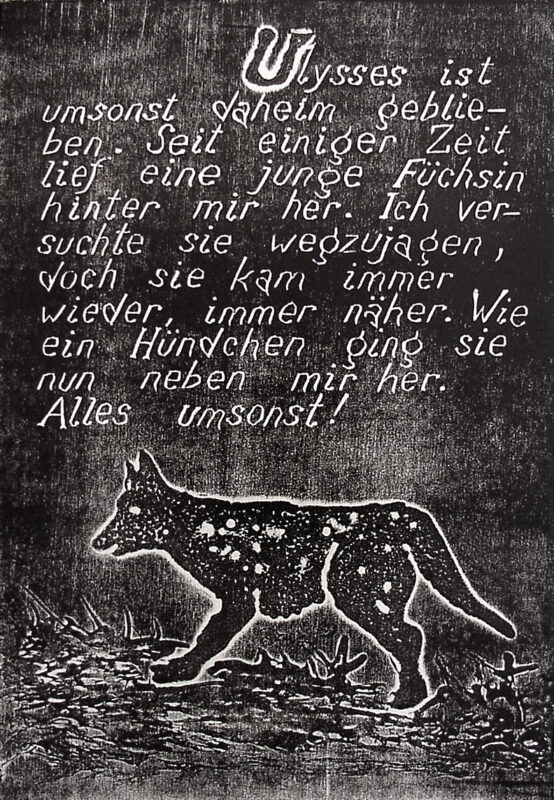 Ulysses ist
umsonst daheim geblie-
ben. Seit einiger Zeit
lief eine junge Füchsin
hinter mir her. Ich ver-
suchte sie wegzujagen,
doch sie kam immer
wieder, immer näher. Wie
ein Hündchen ging sie
nun neben mir her.
Alles umsonst!